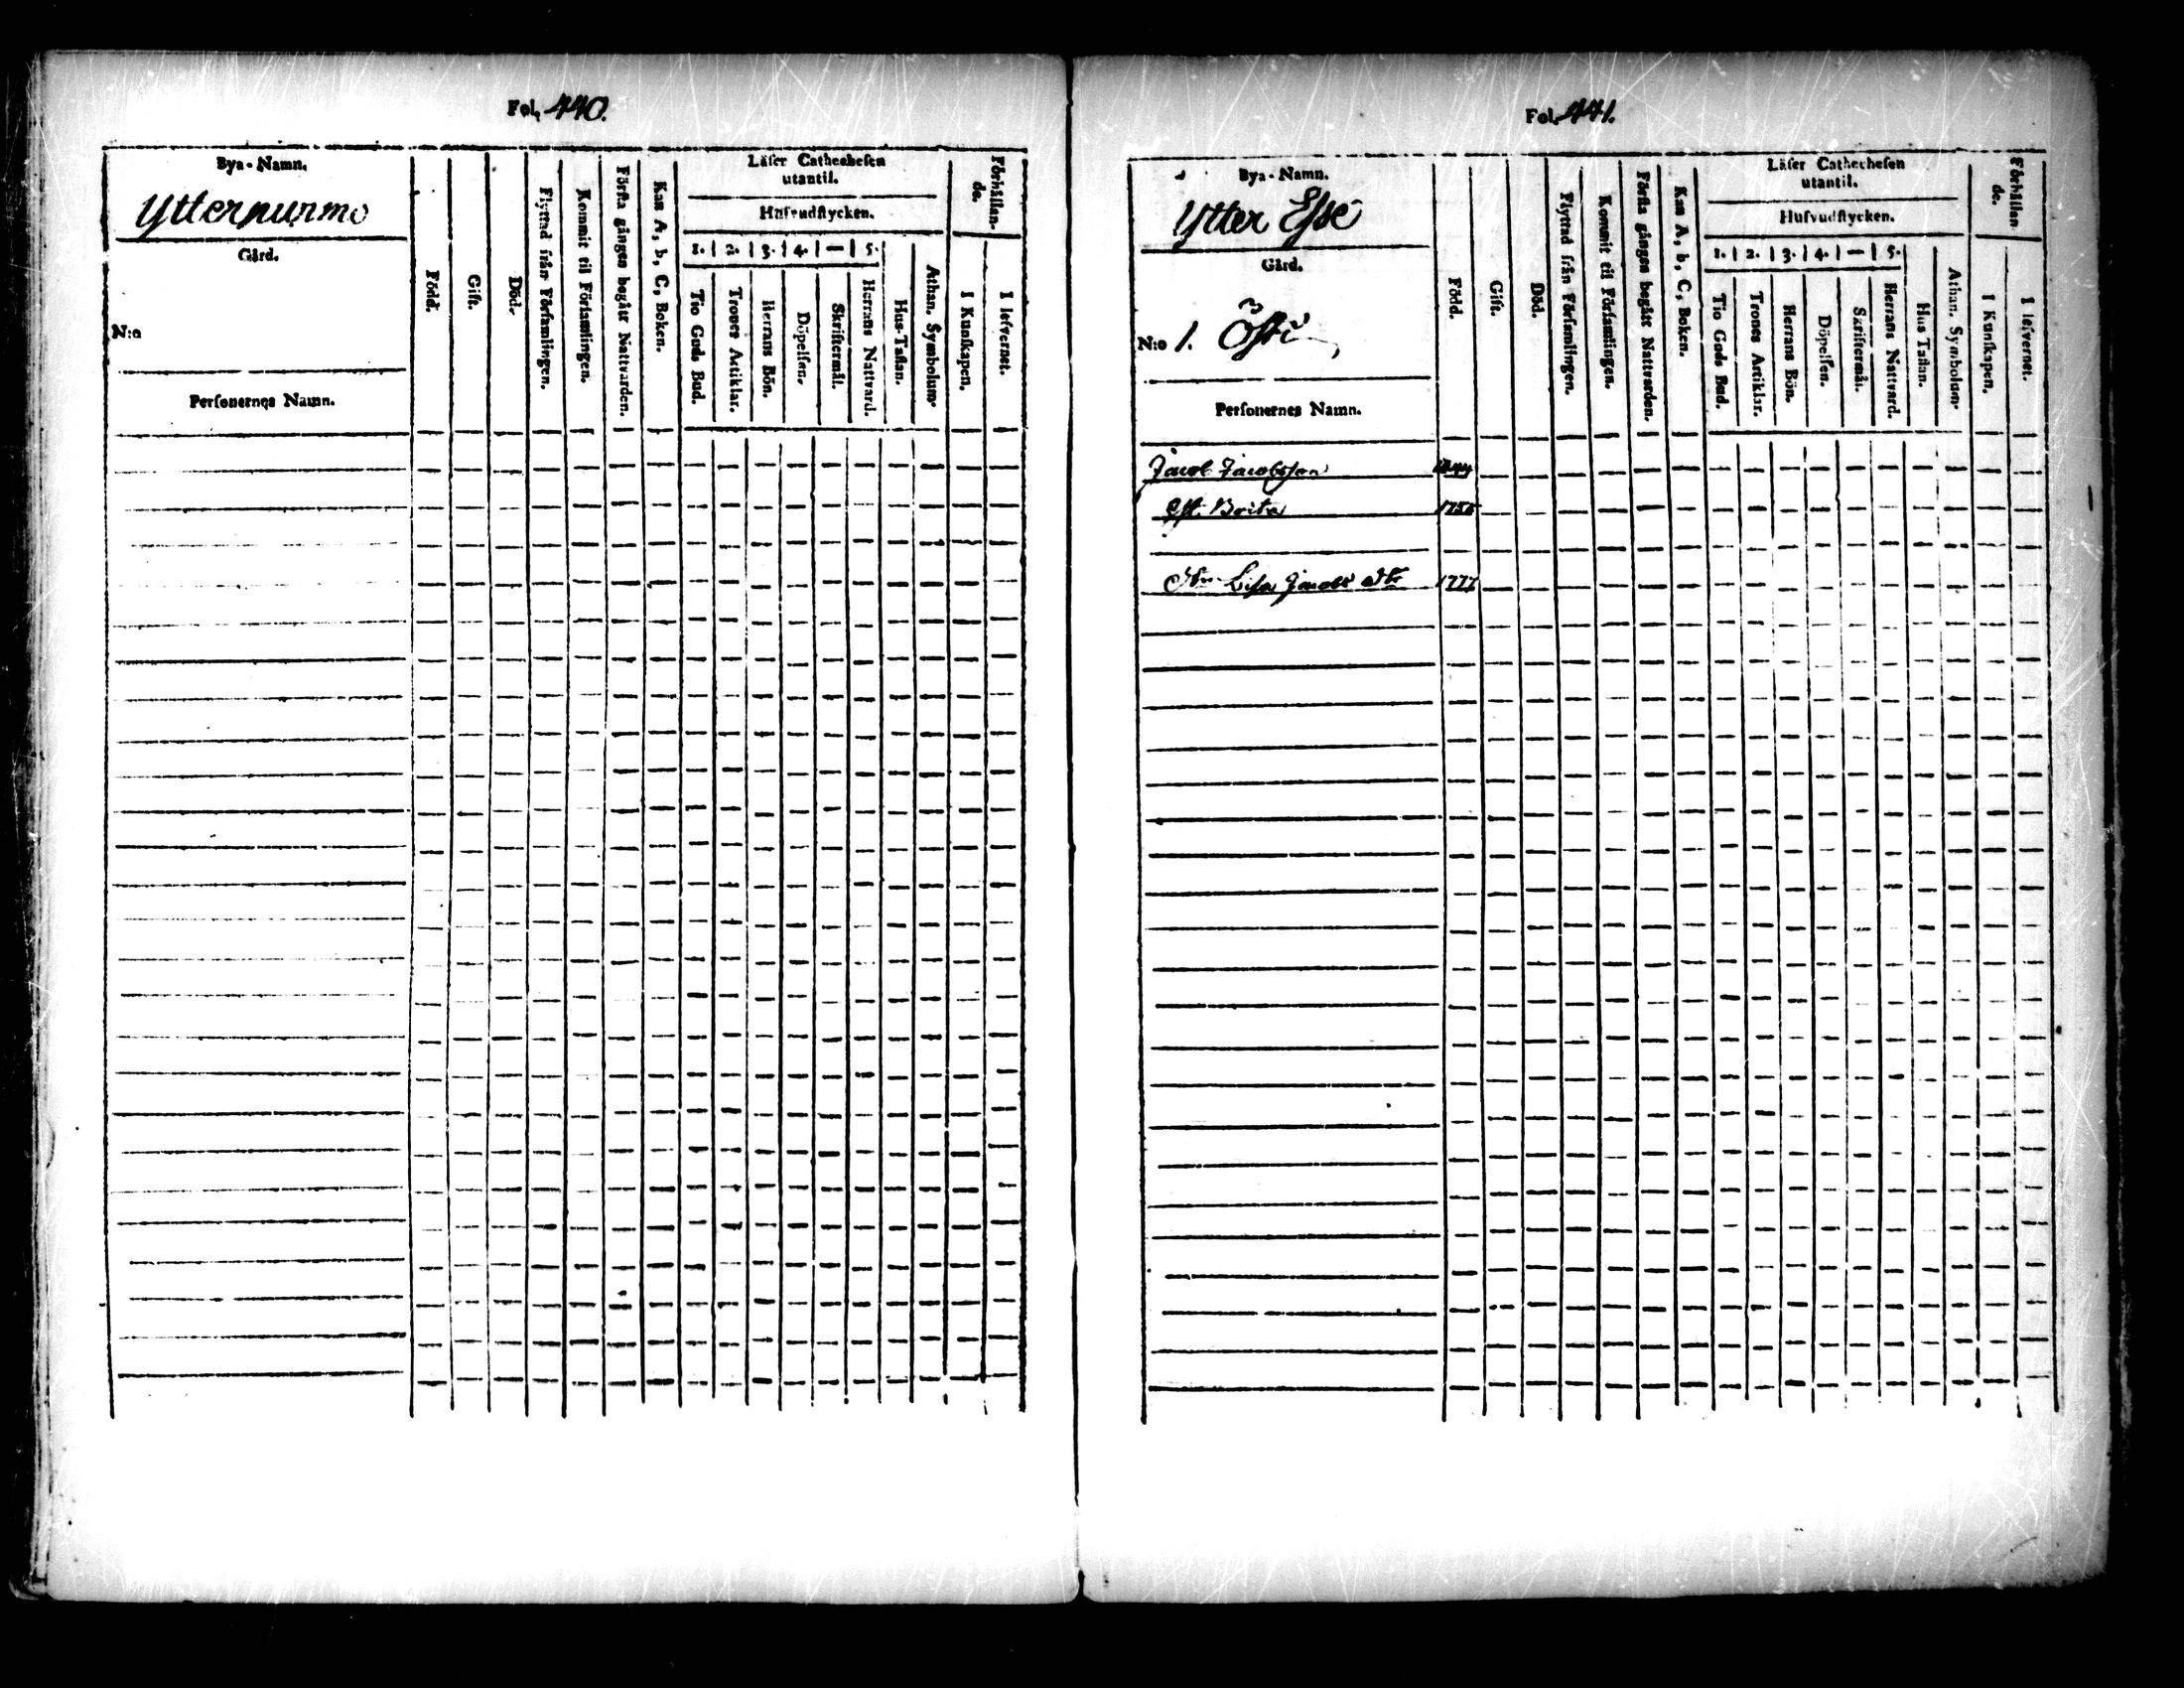 Fol. 440.
Bya-Namn.
Ytterpurmo
Gård.
N:o
Personernes Namn.
Född.
Gift.
Död.
Flyttad från Församlingen.
Kommit til Församlingen.
Första gången begått Nattvarden.
Kan A, b, C, Boken.
Läser Cathechesen
utantil.
Hufvudstycken.
1. 2. 3. 4. — 5.
Tio Guds Bud.
Trones Artiklar.
Herrans Bön.
Döpelsen.
Skriftermål.
Herrans Nattvard.
Hus-Taflan.
Athan. Symbolum.
Förhållan-
de.
I Kunskapen.
I lefvernet.
Fol. 441.
Bya-Namn.
Ytter Esse
Gård.
N:o 1.
Personernes Namn.
Född.
Gift.
Död.
Flyttad från Församlingen.
Kommit til Församlingen.
Första gången begått Nattvarden.
Kan A, b, C, Boken.
Läser Cathechesen
utantil.
Hufvudstycken.
1. 2. 3. 4. — 5.
Tio Guds Bud.
Trones Artiklar.
Herrans Bön.
Döpelsen.
Skriftermål.
Herrans Nattvard.
Hus Taflan.
Athan. Symbolum.
Förhållan-
de.
I Kunskapen.
I lefvernet.
Jacob Jacobsson
Brita
Lisa Jacobs dtr 1777